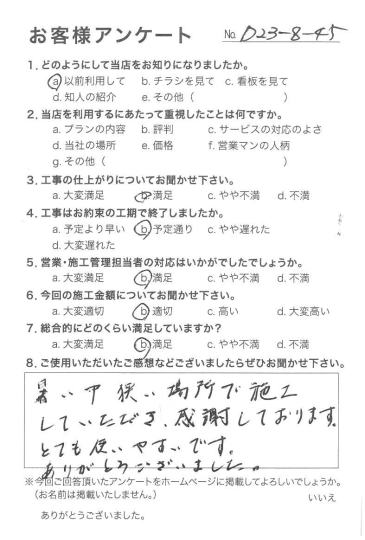 お客様アンケート No. D23-8-45
1. どのようにして当店をお知りになりましたか。
a. 以前利用して b. チラシを見て c. 看板を見て
d. 知人の紹介 e. その他（ ）
2. 当店を利用するにあたって重視したことは何ですか。
a. プランの内容 b. 評判 c. サービスの対応のよさ
d. 当社の場所 e. 価格 f. 営業マンの人柄
g. その他（ ）
3. 工事の仕上がりについてお聞かせ下さい。
a. 大変満足 b. 満足 c. やや不満 d. 不満
4. 工事はお約束の工期で終了しましたか。
a. 予定より早い b. 予定通り c. やや遅れた
d. 大変遅れた
5. 営業・施工管理担当者の対応はいかがでしたでしょうか。
a. 大変満足 b. 満足 c. やや不満 d. 不満
6. 今回の施工金額についてお聞かせ下さい。
a. 大変適切 b. 適切 c. 高い d. 大変高い
7. 総合的にどのくらい満足していますか？
a. 大変満足 b. 満足 c. やや不満 d. 不満
8. ご使用いただいたご感想などございましたらぜひお聞かせ下さい。
暑い中狭い場所で施工
していただき、感謝しております。
とても使いやすいです。
ありがとうございました。
※今回ご回答頂いたアンケートをホームページに掲載してよろしいでしょうか。
（お名前は掲載いたしません。） いいえ
ありがとうございました。